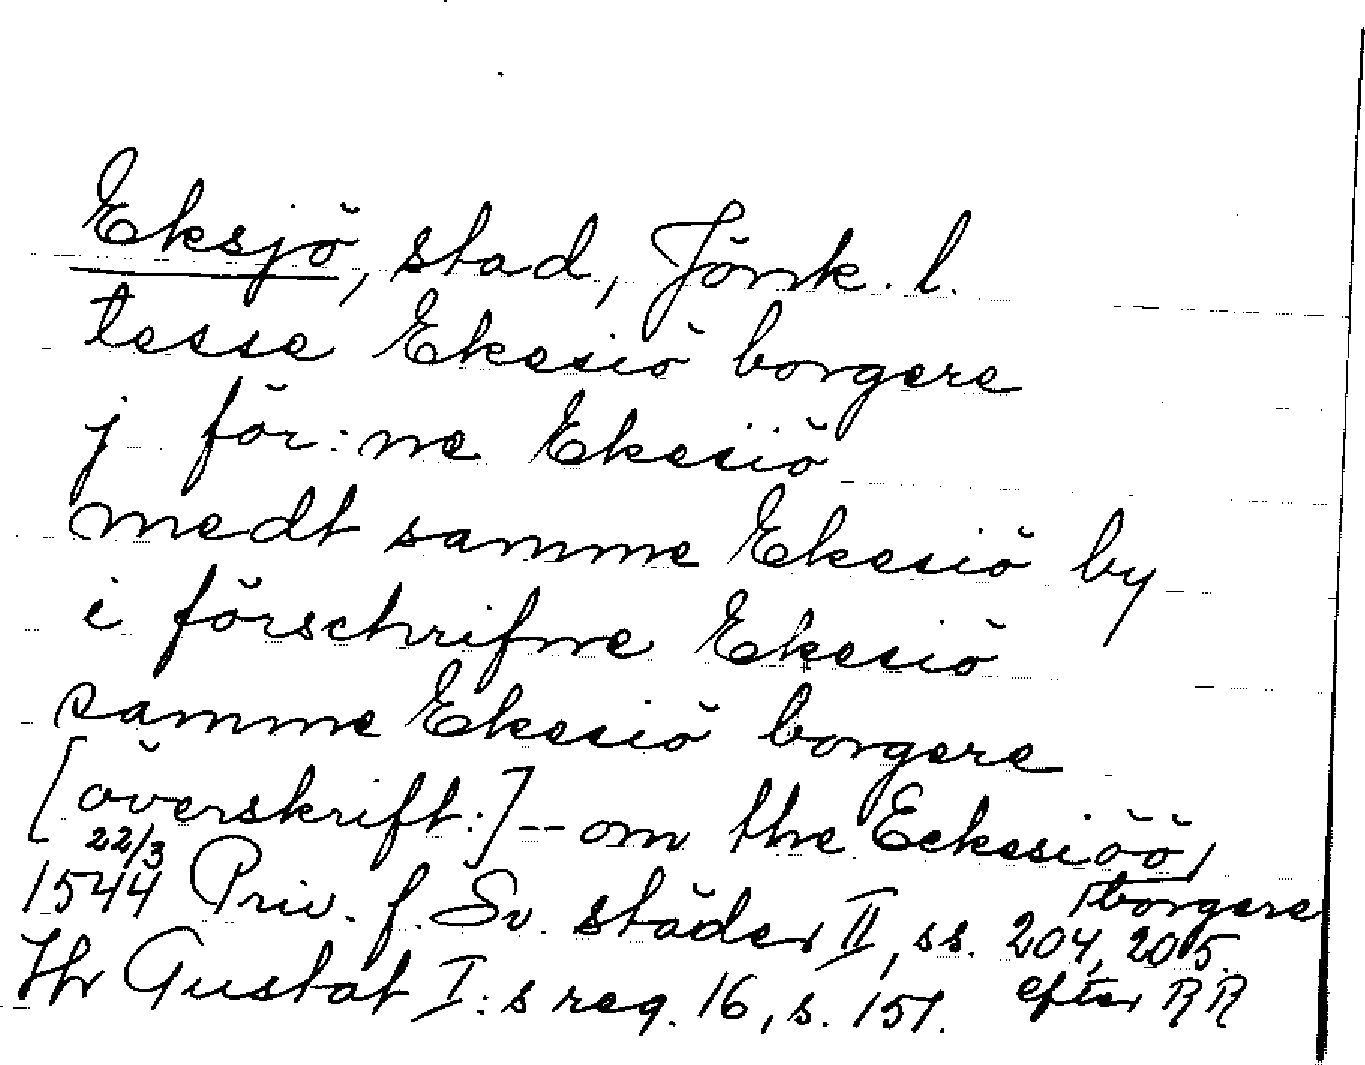 Eksjö, stad, Jönk. l.
tesse Ekesiö borgere
j för:ne Ekesiö
medt samme Ekesiö by
i förschrifne Ekesiö
samme Ekesiö borgere
[överskrift:] -- om the Eckesiöö
borgere
22/3
1544 Priv. f. Sv. städer II, ss. 204, 205.
efter RR
Jfr Gustaf I:s reg. 16, s. 151.